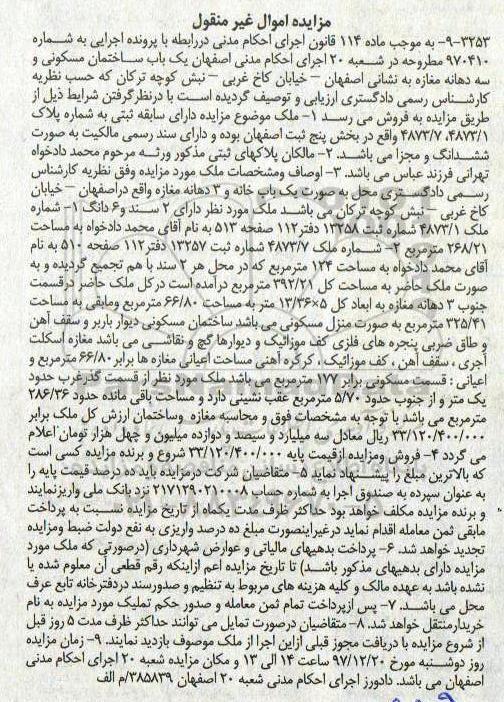 مزایده اموال غیر منقول
۳۲۵۳-۹- به موجب ماده ۱۱۴ قانون اجرای احکام مدنی دررابطه با پرونده اجرایی به شماره
۹۷۰۴۱۰ مطروحه در شعبه ۲۰ اجرای احکام مدنی اصفهان یک باب ساختمان مسکونی و
سه دهانه مغازه به نشانی اصفهان – خیابان کاخ غربی – نبش کوچه ترکان که حسب نظریه
کارشناس رسمی دادگستری ارزیابی و توصیف گردیده است با درنظرگرفتن شرایط ذیل از
طریق مزایده به فروش می رسد ۱- ملک موضوع مزایده دارای سابقه ثبتی به شماره پلاک
۴۸۷۳/۱، ۴۸۷۳/۷ واقع در بخش پنج ثبت اصفهان بوده و دارای سند رسمی مالکیت به صورت
ششدانگ و مجزا می باشد. ۲- مالکان پلاکهای ثبتی مذکور ورثه مرحوم محمد دادخواه
تهرانی فرزند عباس می باشد. ۳- اوصاف ومشخصات ملک مورد مزایده وفق نظریه کارشناس
رسمی دادگستری محل به صورت یک باب خانه و ۳ دهانه مغازه واقع دراصفهان – خیابان
کاخ غربی – نبش کوچه ترکان می باشد ملک مورد نظر دارای ۲ سند و۶ دانگ ۱- شماره
ملک ۴۸۷۳/۱ شماره ثبت ۱۳۲۵۸ دفتر۱۱۲ صفحه ۵۱۳ به نام آقای محمد دادخواه به مساحت
۲۶۸/۲۱ مترمربع ۲- شماره ملک ۴۸۷۳/۷ شماره ثبت ۱۳۲۵۷ دفتر۱۱۲ صفحه ۵۱۰ به نام
آقای محمد دادخواه به مساحت ۱۲۴ مترمربع که در محل هر ۲ سند با هم تجمیع گردیده و به
صورت ملک حاضر به مساحت کل ۳۹۲/۲۱ مترمربع درآمده است درکل ملک حاضر درقسمت
جنوب ۳ دهانه مغازه به ابعاد کل ۵×۱۳/۳۶ متر به مساحت ۶۶/۸۰ مترمربع ومابقی به مساحت
۳۲۵/۴۱ مترمربع به صورت منزل مسکونی می باشد ساختمان مسکونی دیوار باربر و سقف آهن
و طاق ضربی پنجره های فلزی کف موزائیک و دیوارها گچ و نقاشی می باشد مغازه اسکلت
آجری ، سقف آهن ، کف موزائیک ، کرکره آهنی مساحت اعیانی مغازه ها برابر ۶۶/۸۰ مترمربع و
اعیانی : قسمت مسکونی برابر ۱۷۷ مترمربع می باشد ملک مورد نظر از قسمت گذرغرب حدود
یک متر و از جنوب حدود ۵/۷۰ مترمربع عقب نشینی دارد و مساحت باقی مانده حدود ۲۸۶/۳۶
مترمربع می باشد با توجه به مشخصات فوق و محاسبه مغازه وساختمان ارزش کل ملک برابر
۳۳/۱۲۰/۴۰۰/۰۰۰ ریال معادل سه میلیارد و سیصد و دوازده میلیون و چهل هزار تومان اعلام
می گردد ۴- فروش ومزایده ازقیمت پایه ۳۳/۱۲۰/۴۰۰/۰۰۰ شروع و برنده مزایده کسی است
که بالاترین مبلغ را پیشنهاد نماید ۵- متقاضیان شرکت درمزایده باید ده درصد قیمت پایه را
به عنوان سپرده به صندوق اجرا به شماره حساب ۲۱۷۱۲۹۰۲۱۰۰۸ نزد بانک ملی واریزنمایند
و برنده مزایده مکلف خواهد بود حداکثر ظرف مدت یکماه از تاریخ مزایده نسبت به پرداخت
مابقی ثمن معامله اقدام نماید درغیراینصورت مبلغ ده درصد واریزی به نفع دولت ضبط ومزایده
تجدید خواهد شد. ۶- پرداخت بدهیهای مالیاتی و عوارض شهرداری (درصورتی که ملک مورد
مزایده دارای بدهیهای مذکور باشد) تا تاریخ مزایده اعم ازاینکه رقم قطعی آن معلوم شده یا
نشده باشد به عهده مالک و کلیه هزینه های مربوط به تنظیم و صدورسند دردفترخانه تابع عرف
محل می باشد. ۷- پس ازپرداخت تمام ثمن معامله و صدور حکم تملیک مورد مزایده به نام
خریدارمنتقل خواهد شد. ۸- متقاضیان درصورت تمایل می توانند حداکثر ظرف مدت ۵ روز قبل
از شروع مزایده با دریافت مجوز قبلی ازاین اجرا از ملک موصوف بازدید نمایند. ۹- زمان مزایده
روز دوشنبه مورخ ۹۷/۱۲/۲۰ ساعت ۱۴ الی ۱۳ و مکان مزایده شعبه ۲۰ اجرای احکام مدنی
اصفهان می باشد. دادورز اجرای احکام مدنی شعبه ۲۰ اصفهان ۳۸۵۸۳۹/م الف